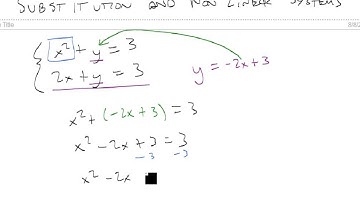 SUBSTITUTION AND NON LINEAR SYSTEMS
Title
x² + y = 3
2x + y = 3
y = -2x + 3
x² + (-2x + 3) = 3
x² - 2x + 3 = 3
-3 -3
x² - 2x